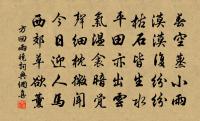 春空小雨
漠漠復紛紛
枯石皆生水
平田亦出雲
氣溫禽暗覺
聲細枕微聞
今日迎人馬
西郊草欲薰
方回雨